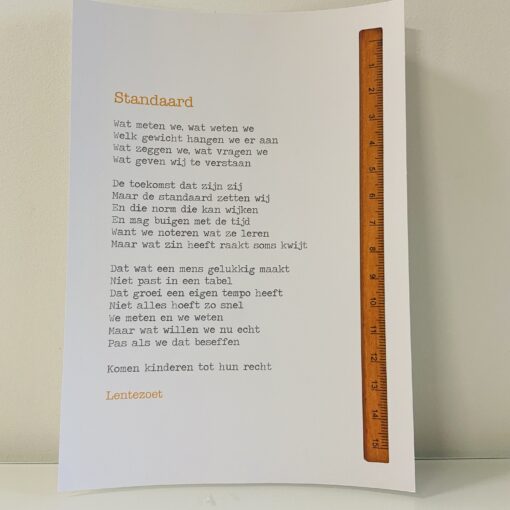 Standaard
Wat meten we, wat weten we
Welk gewicht hangen we er aan
Wat zeggen we, wat vragen we
Wat geven wij te verstaan
De toekomst dat zijn zij
Maar de standaard zetten wij
En die norm die kan wijken
En mag buigen met de tijd
Want we noteren wat ze leren
Maar wat zin heeft raakt soms kwijt
Dat wat een mens gelukkig maakt
Niet past in een tabel
Dat groei een eigen tempo heeft
Niet alles hoeft zo snel
We meten en we weten
Maar wat willen we nu echt
Pas als we dat beseffen
Komen kinderen tot hun recht
Lentezoet
1
2
3
4
5
6
7
8
9
10
11
12
13
14
15